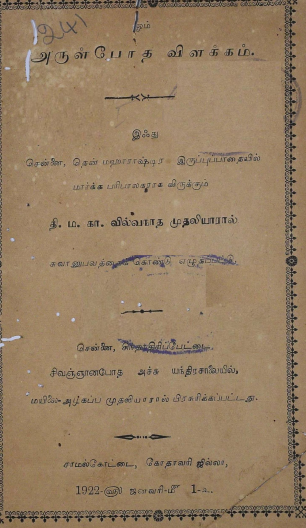 1241
ஓம்
அருள்போத விளக்கம்.
இஃது
சென்னை, தென் மஹாராஷ்டிர இருப்புப்பாதையில்
மார்க்க பரிபாலகராக விருக்கும்
தி. ம. கா. வில்வநாத முதலியாரால்
சுவானுபவத்தைக் கொண்டு எழுதப்பட்டு,
சென்னை, சிந்தாதிரிப்பேட்டை,
சிவஞ்ஞானபோத அச்சு யந்திரசாலையில்,
மயிலை-அழகப்ப முதலியாரால் பிரசுரிக்கப்பட்டது.
சாமல்கோட்டை, கோதாவரி ஜில்லா,
1922-ஹு ஜனவரி-மீ 1-உ.